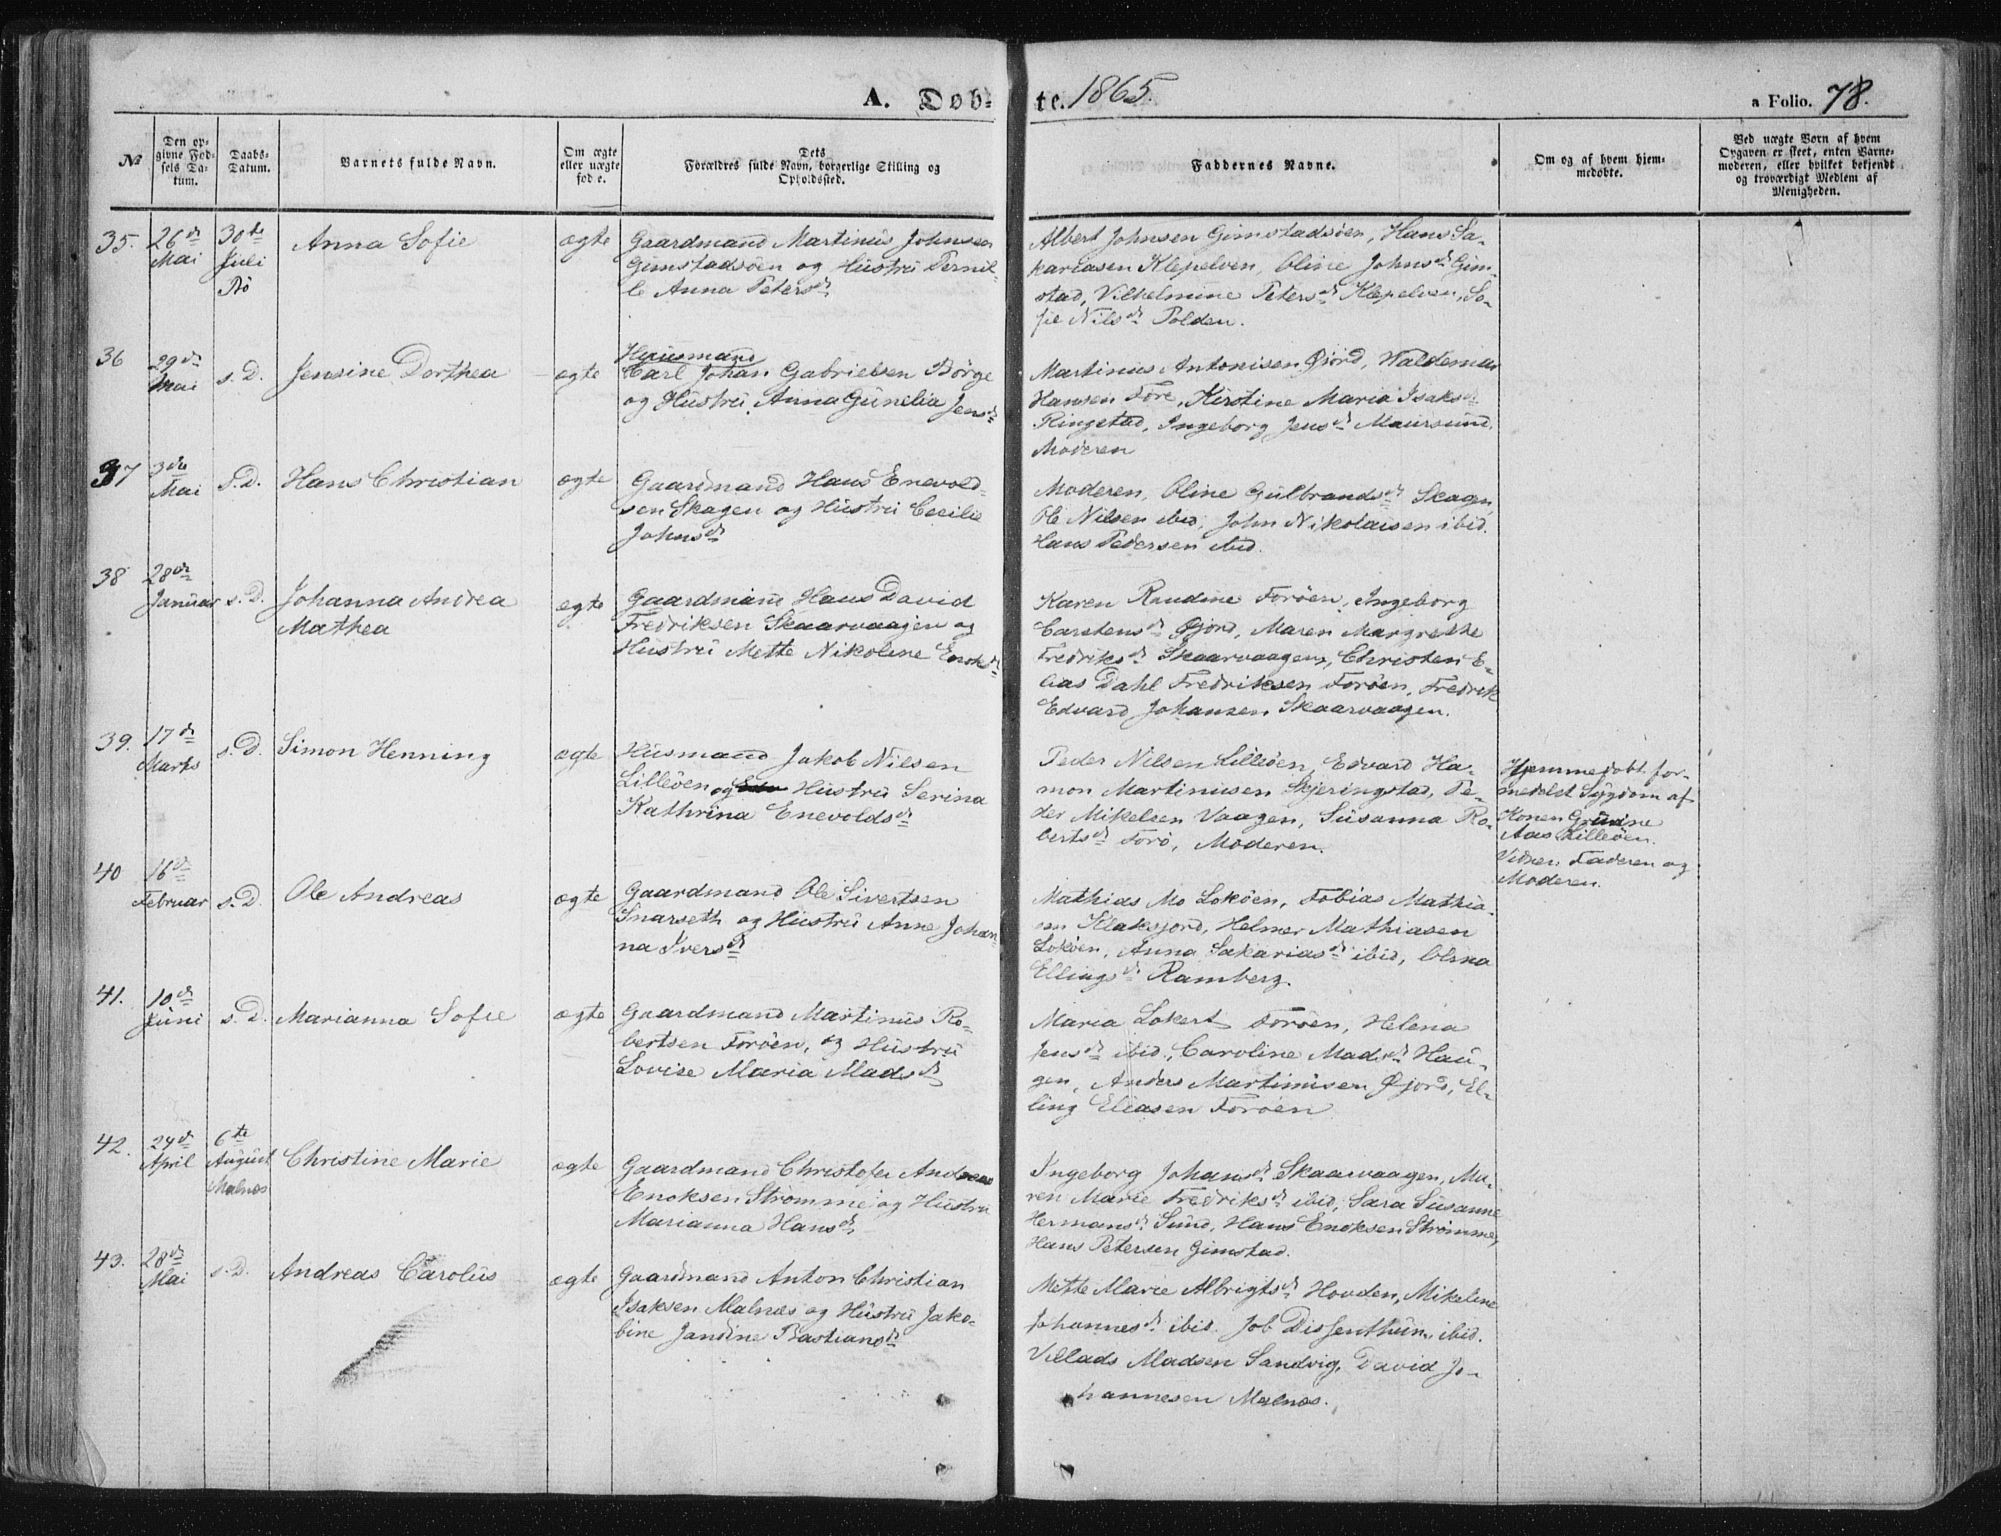 A. Døb-
te. 1865.
a Folio. 78.
№
Den op-
givne Fød-
sels Da-
tum.
Daabs-
Datum.
Barnets fulde Navn.
Om ægte
eller uægte
føde.
Dets
Forældres fulde Navn, borgerlige Stilling og
Opholdssted.
Faddernes Navne.
Om og af hvem hjem-
medøbte.
Ved uægte Børn af hvem
Opgaven er skeet, enten Barne-
moderen, eller hvilket bekjendt
og troværdigt Medlem af
Menigheden.
35.
26de
Mai
30te
Juli
Bö
Anna Sofie
ægte
Gaardmand Martinus Johnsen
Gimstadsöen og Hustru Pernil-
le Anna Petersd.
Albert Johnsen Gimstadsöen, Hans Sa-
kariasen Klepelven, Oline Johnsd. Gim-
stad, Vilhelmine Petersd. Klepelven, So-
fie Nilsd. Polden.
36
29de
Mai
s. D.
Jensine Dorthea
ægte
Huusmand
Carl Johan Gabrielsen Börge
og Hustru Anna Gunelia Jensd.
Martinus Antonisen Øjord, Waldemar
Hansen Före, Kirstine Maria Isaksd.
Ringstad, Ingeborg Jensd. Maursund,
Moderen
37
3die
Mai
s. D.
Hans Christian
ægte
Gaardmand Hans Enevold-
sen Skagen og Hustru Cecilie
Johnsd.
Moderen, Oline Gulbrandsd. Skagen,
Ole Nilsen ibid, John Nikolaisen ibid.
Hans Pedersen ibid.
38
28de
Januar
s. D.
Johanna Andrea
Mathea
ægte
Gaardmand Hans David
Fredriksen Skaarvaagen og
Hustru Mette Nikoline Enoksd.
Karen Randine Foröen, Ingeborg
Carstensd. Øjord, Maren Margrethe
Fredriksd. Skaarvaagen, Christen E-
lias Dahl Fredriksen Foröen, Fredrik
Edvard Johansen Skaarvaagen.
39.
17de
Marts
s. D.
Simon Henning
ægte
Husmand Jakob Nilsen
Lilleöen og Hustru Serina
Kathrina Enevoldsd.
Peder Nilsen Lilleöen, Edvard Ha-
mon Martinusen Skjeringstad, Pe-
der Mikelsen Vaagen, Susanna Ro-
bertsd. Forö, Moderen.
Hjemmedöbt for-
medelst Sygdom af
Konen Grudine
Aas Lilleöen.
Vidner Faderen og
Moderen.
40
16de
Februar
s. D.
Ole Andreas
ægte
Gaardmand Ole Sivertsen
Snarseth og Hustru Anne Johan-
na Iversd.
Mathias Mo Loköen, Tobias Mathia-
sen Klaksjord, Helmer Mathiasen
Loköen, Anna Sakariasd. ibid, Olina
Ellingsd. Ramberg.
41.
10de
Juni
s. D.
Marianna Sofie
ægte
Gaardmand Martinus Ro-
bertsen Foröen, og Hustru
Lovise Maria Madsd.
Maria Lokert Foröen, Helena
Jensd. ibid, Caroline Madsd. Hau-
gen, Anders Martinusen Øjord, El-
ling Eliasen Foröen
42.
24de
April
6te
August
Malnæs
Christine Marie
ægte
Gaardmand Christofer Andreas
Enoksen Strömme og Hustru
Marianna Hansd.
Ingeborg Johansd. Skaarvaagen, Ma-
ren Marie Fredriksd. ibid, Sara Susanne
Hermansd. Sund, Hans Enoksen Strömme,
Hans Petersen Gimstad.
43.
28de
Mai
s. D.
Andreas Carolus
ægte
Gaardmand Anton Christian
Isaksen Malnæs og Hustru Jako-
bine Jandine Bastiansd.
Mette Marie Albrigtsd. Hovden, Mikeline
Johannesd. ibid. Job Dissenthun ibid.
Villads Madsen Sandvig, David Jo-
hannesen Malnæs.